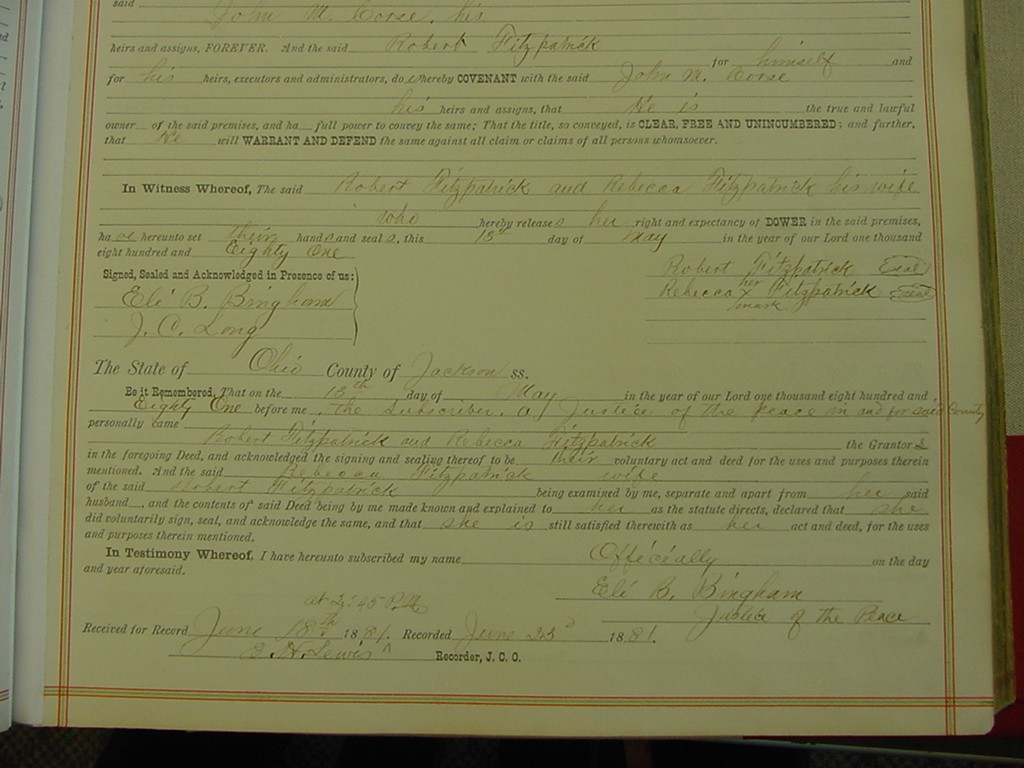 said
John M. Corse, his
heirs and assigns, FOREVER. And the said Robert Fitzpatrick
for himself and
for his heirs, executors and administrators, do es hereby COVENANT with the said John M. Corse
his heirs and assigns, that He is the true and lawful
owner of the said premises, and ha full power to convey the same; That the title, so conveyed, is CLEAR, FREE AND UNINCUMBERED; and further,
that He will WARRANT AND DEFEND the same against all claim or claims of all persons whomsoever.
In Witness Whereof, The said Robert Fitzpatrick and Rebecca Fitzpatrick his wife
who hereby releases her right and expectancy of DOWER in the said premises,
ha ve hereunto set their hands and seals, this 13th day of May in the year of our Lord one thousand
eight hundred and Eighty One
Signed, Sealed and Acknowledged in Presence of us:
Robert Fitzpatrick Seal
Rebecca her x mark Fitzpatrick Seal
Eli B. Bingham
J. C. Long
The State of Ohio County of Jackson ss.
Be it Remembered, That on the 13th day of May in the year of our Lord one thousand eight hundred and
Eighty One before me, the subscriber, a Justice of the peace in and for said County
personally came
Robert Fitzpatrick and Rebecca Fitzpatrick the Grantors
in the foregoing Deed, and acknowledged the signing and sealing thereof to be their voluntary act and deed for the uses and purposes therein
mentioned. And the said Rebecca Fitzpatrick wife
of the said Robert Fitzpatrick being examined by me, separate and apart from her said
husband, and the contents of said Deed being by me made known and explained to her as the statute directs, declared that she
did voluntarily sign, seal, and acknowledge the same, and that she is still satisfied therewith as her act and deed, for the uses
and purposes therein mentioned.
In Testimony Whereof, I have hereunto subscribed my name Officially on the day
and year aforesaid.
Eli B. Bingham
Justice of the Peace
at 2:45 P.M.
Received for Record June 18th 1881. Recorded June 23d 1881.
E. H. Lewis Recorder, J. C. O.